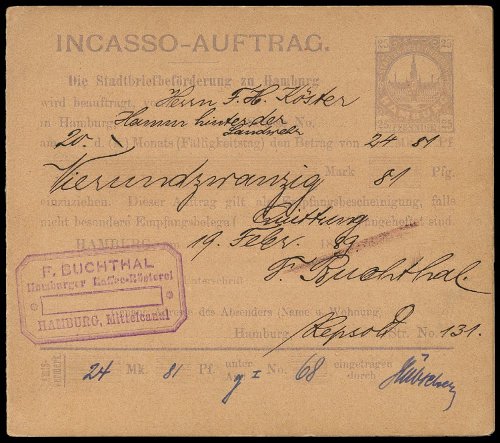 INCASSO-AUFTRAG.
25 25
Die Stadtbriefbeförderung zu Hamburg
wird beauftragt, von Herrn F. H. Köster
in Hamburg Hamm hinter der No.
Landwehr
am 20. d. Monats (Fälligkeitstag) den Betrag von 24 M. 81 Pf.
Vierundzwanzig Mark 81 Pfg.
einzuziehen. Dieser Auftrag gilt als Empfangsbescheinigung, falls
nicht besondere Empfangsbelege Quittung angeheftet sind.
HAMBURG, 19. Febr. 18
F. Buchthal.
Unterschrift
F. BUCHTHAL
Hamburger Kaffee-Rösterei
HAMBURG, Mittelcanal
Adresse des Absenders (Name u. Wohnung)
Hamburg, Repsold Str. No. 131.
24 Mk. 81 Pf. unter g I No. 68 eingetragen
durch